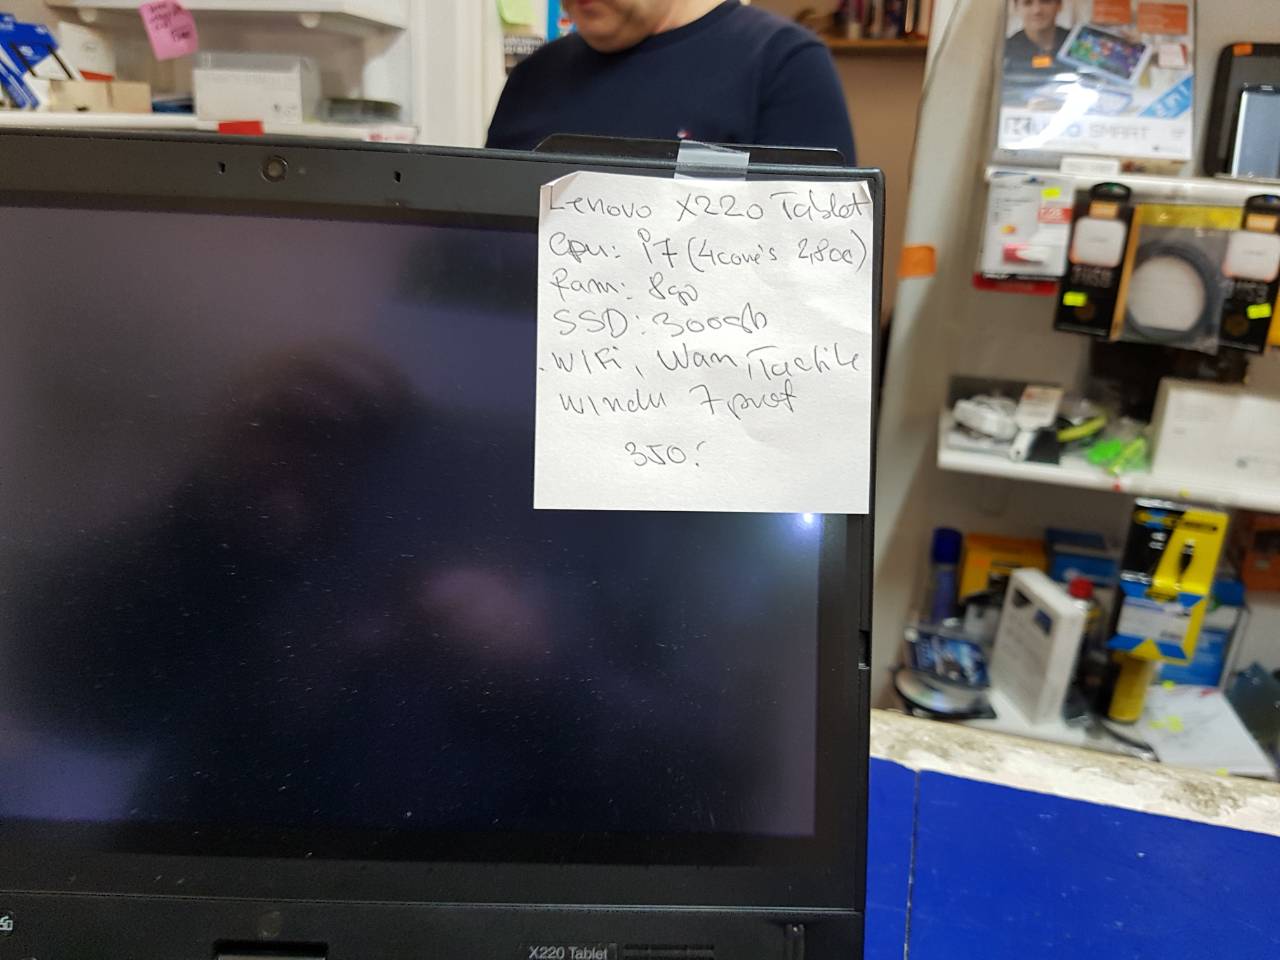 Lenovo X220 Tablet
Cpu: i7 (4core's 2,80G)
Ram: 8go
SSD: 300Gb
WiFi, Wan, Tactile
Windu 7 prof
350.
X220 Tablet
SMART